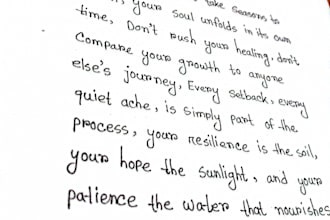 take seasons to
your soul unfolds in its own
time, Don't rush your healing, don't
compare your growth to anyone
else's journey, Every setback, every
quiet ache, is simply part of the
process, your resilience is the soil,
your hope the sunlight, and your
patience the water that nourishes